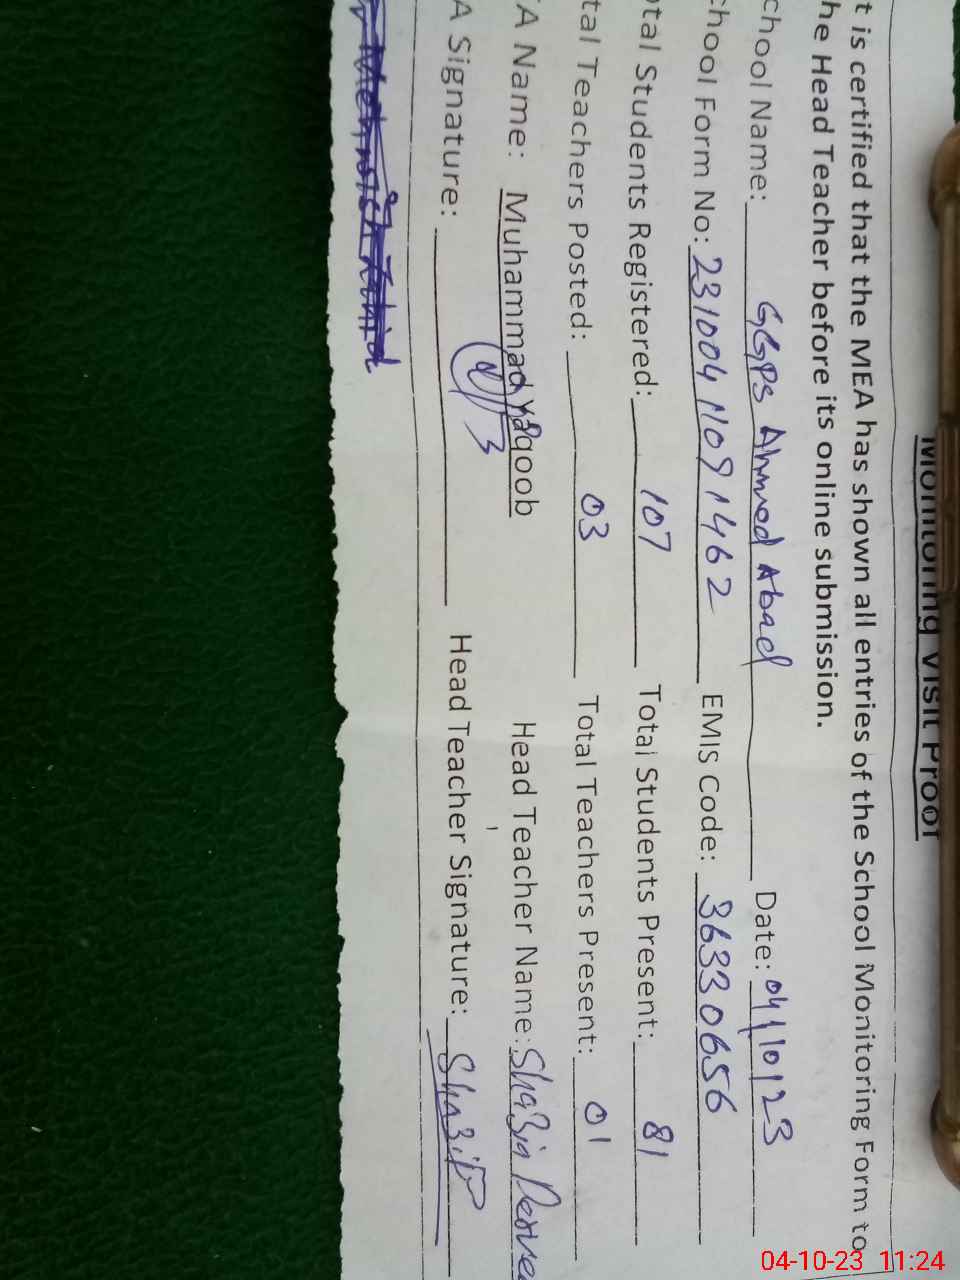 Monitoring Visit Proof
t is certified that the MEA has shown all entries of the School Monitoring Form to
he Head Teacher before its online submission.
chool Name: GGPS Ahmed Abad Date: 04/10/23
chool Form No: 23100411091462 EMIS Code: 36330656
otal Students Registered: 107 Total Students Present: 81
tal Teachers Posted: 03 Total Teachers Present: 01
A Name: Muhammad Yaqoob Head Teacher Name: Shazia
A Signature: Head Teacher Signature:
04-10-23 11:24